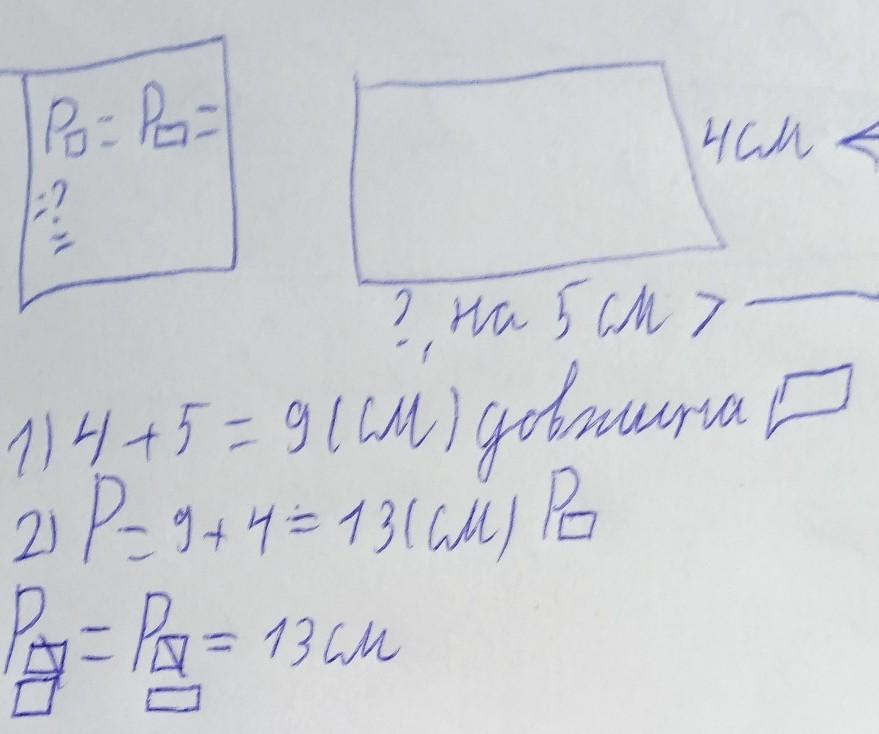 P□ = P▭ =
= ?
=
4 см
?, на 5 см >
1) 4 + 5 = 9 (см) довжина ▭
2) P = 9 + 4 = 13 (см) P▭
P□ = P▭ = 13 см